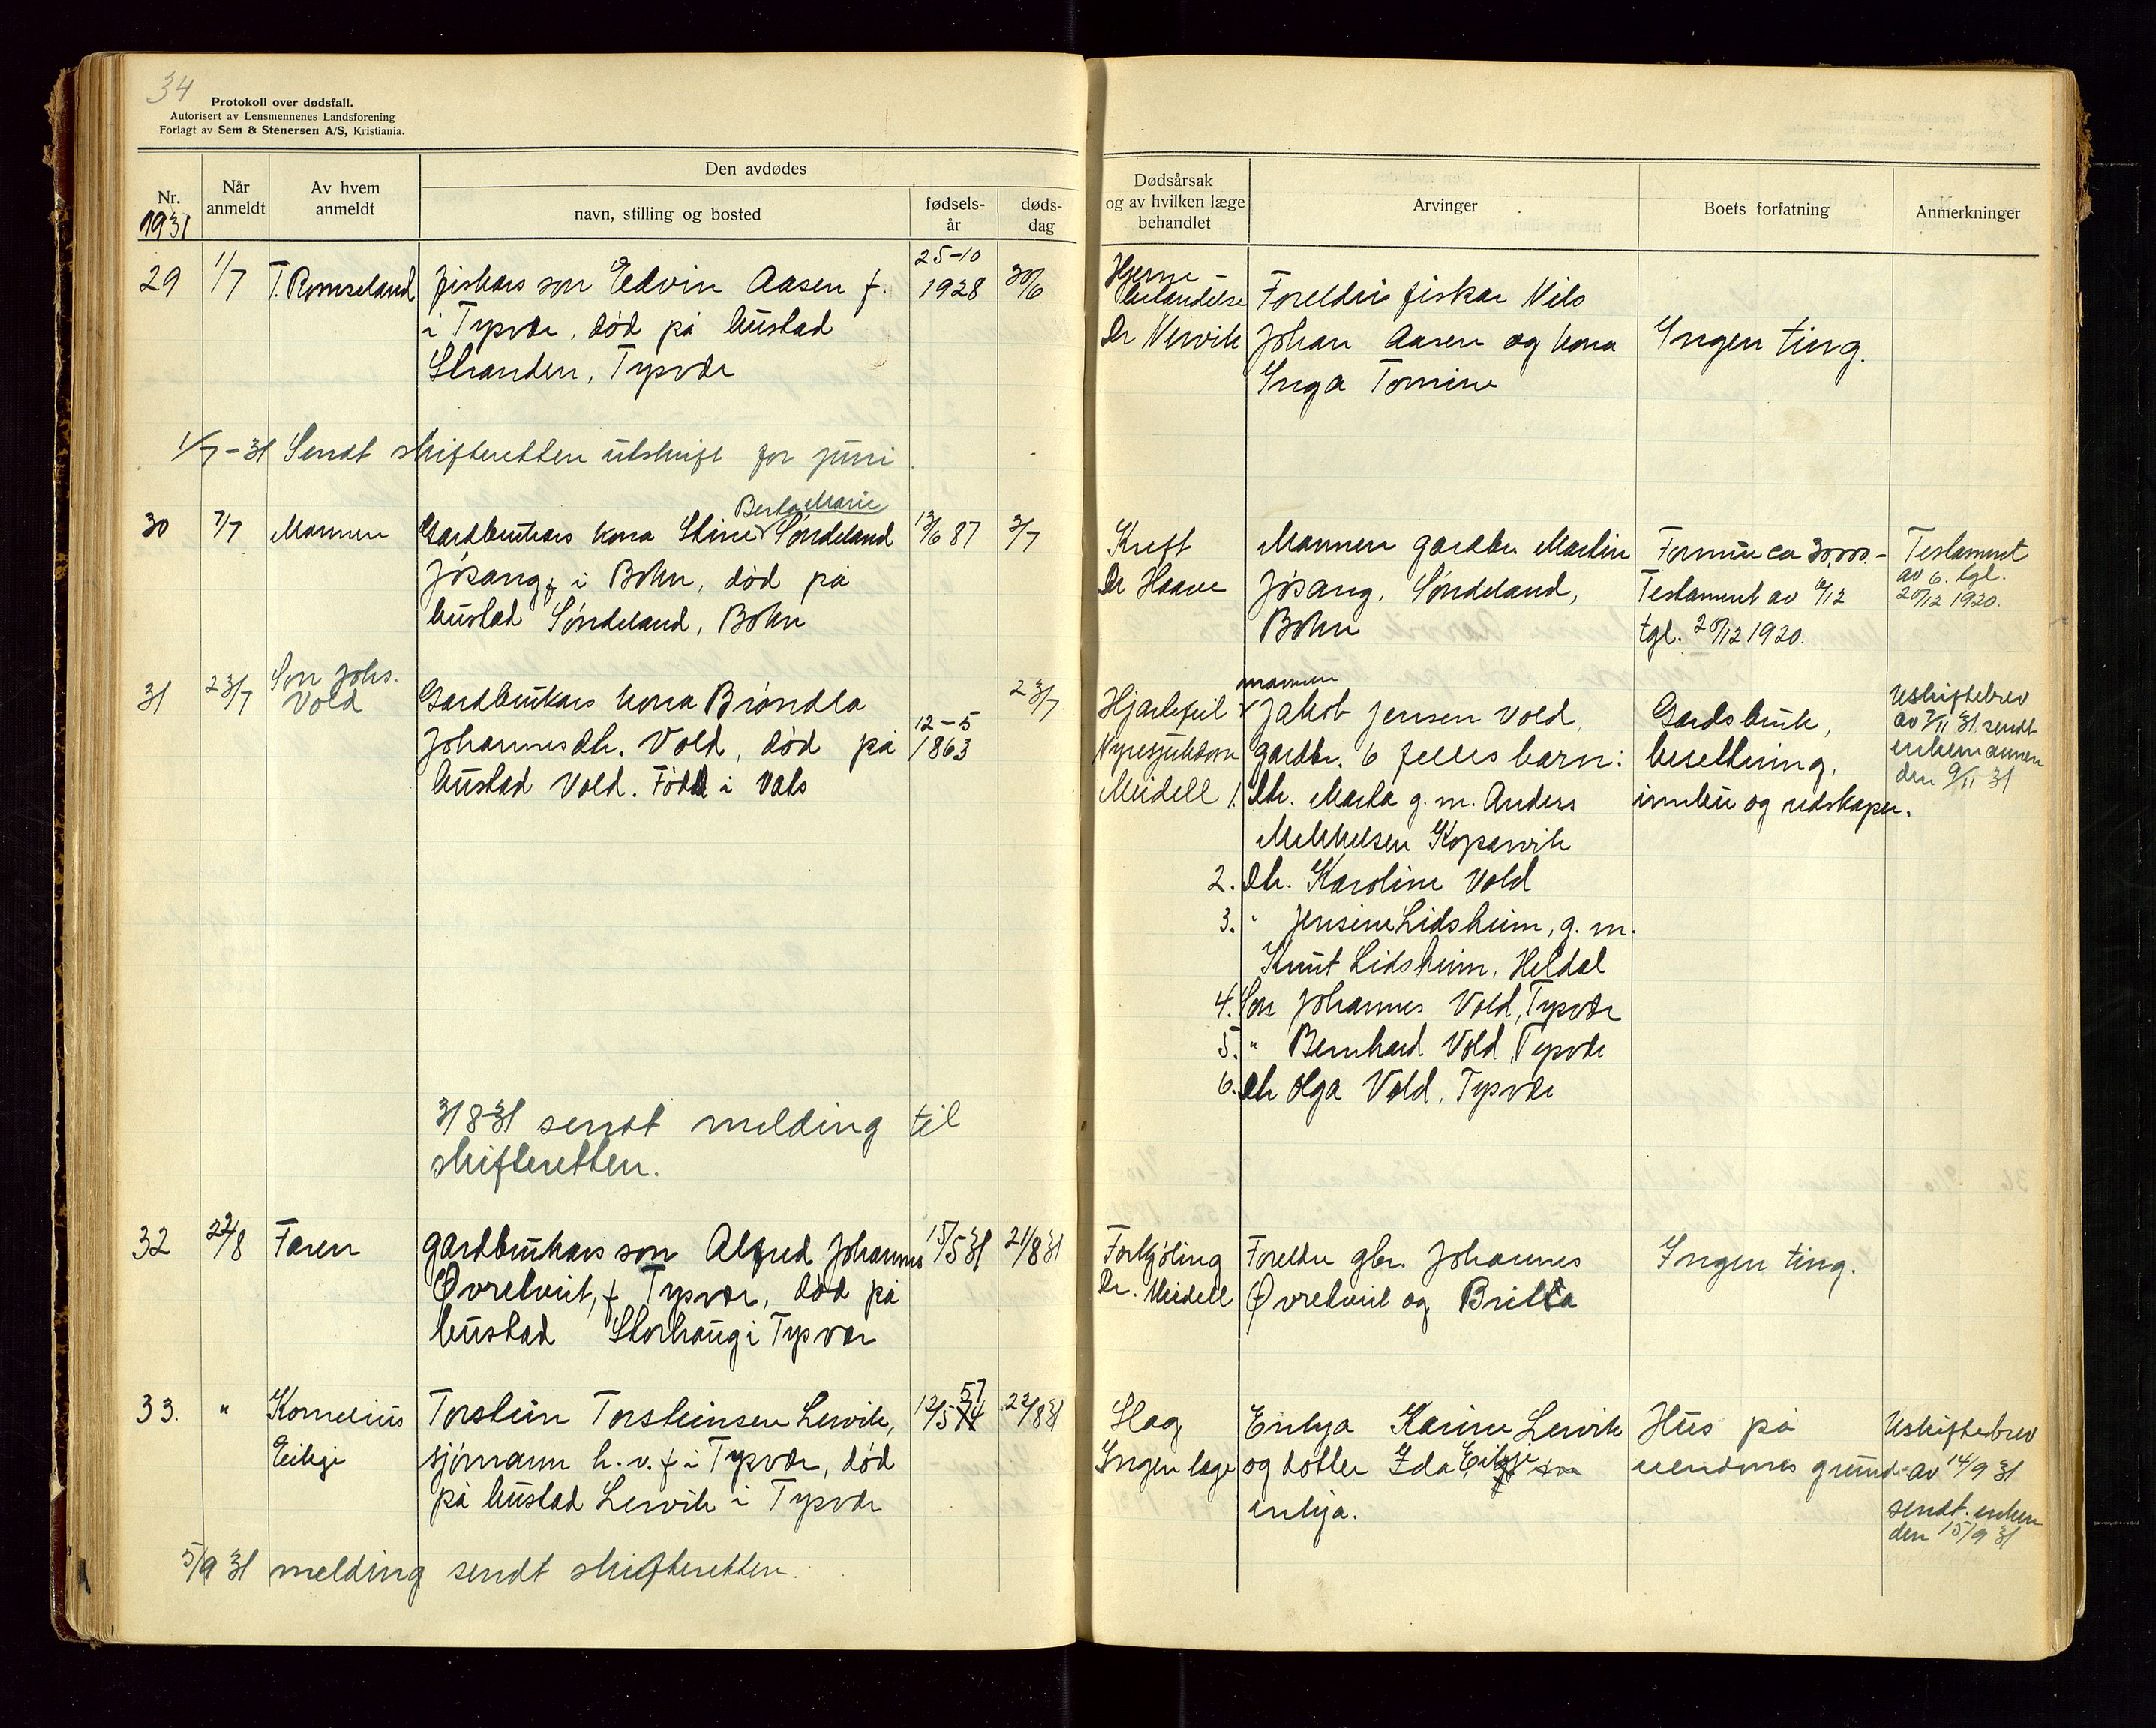 34
Protokoll over dødsfall.
Autorisert av Lensmennenes Landsforening
Forlagt av Sem & Stenersen A/S, Kristiania.
Nr.
1931
Når
anmeldt
Av hvem
anmeldt
Den avdødes
navn, stilling og bosted
fødsels-
år
døds-
dag
Dødsårsak
og av hvilken læge
behandlet
Arvinger
Boets forfatning
Anmerkninger
29 1/7 T. Romseland fiskars son Edvin Aasen f. 25-10 1928 30/6
i Tysvær, død på bustad
Stranden, Tysvær
Hjerne
betændelse
Dr Nervik
Foreldri fiskar Nils
Johan Aasen og kona
Inga Tomine
Ingen ting.
1/7-31 Sendt skifteretten utskrift for juni
30 7/7 Mannen Gardbrukars kona Stine Berta Marie Søndeland 13/6 87 3/7
Jøsang f. i Bokn, død på
bustad Søndeland, Bokn
Kreft
Dr Haave
Mannen gardbr. Martin
Jøsang, Søndeland,
Bokn
Formue ca 30,000.-
Testament av 6/12
tgl. 20/12 1920.
Testament
av 6. tgl.
20/12 1920.
31 23/7 Son Johs.
Vold
Gardbrukars kona Brøndla 23/7
Johannesdtr. Vold, død på 12-5 1863
bustad Vold. Född i Vats
Hjartefeil
Nyresjukdom
Meidell
mannen
Jakob Jensen Vold,
gardbr. 6 felles barn:
1. Dtr. Marta g. m. Anders
Mikkelsen Kopervik
2. Dtr. Karoline Vold
3. " Jensine Lidsheim, g. m.
Knut Lidsheim, Heldal
4. Son Johannes Vold, Tysvær
5. " Bernhard Vold, Tysvær
6. Dtr Olga Vold, Tysvær
Gardsbruk,
besettning,
innbu og redskaper.
Uskiftebrev
av 7/11 31 sendt
enkemannen
den 9/11 31
31/8 31 sendt melding til
skifteretten.
32 22/8 Faren gardbrukars son Alfred Johannes 15/5 31 21/8 31
Øvretveit, f. Tysvær, død på
bustad Storhaug i Tysvær
Forkjöling
Dr. Meidell
Foreldre gbr. Johannes
Øvretveit og Britta
Ingen ting.
33. " Kornelius
Eikje
Torstein Torsteinsen Lervik, 12/5 57 22/8 31
sjømann h. v. f. i Tysvær, død
på bustad Lervik i Tysvær
Slag
Ingen læge
Enkja Karine Lervik
og dotter Ida Eikje
enkja.
Hus på
eiendomes grund
Uskiftebrev
av 14/9 31
sendt enken
den 15/9 31
5/9 31 melding sendt skifteretten.